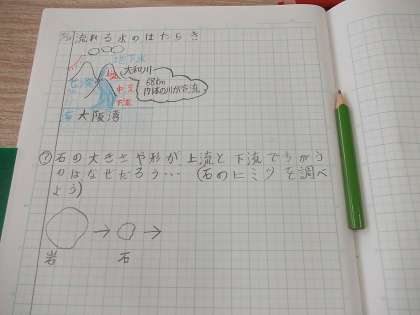 流れる水のはたらき
地下水
大和川
68km
上流
中流
下流
大阪湾
石の大きさや形が上流と下流でちがう
のはなぜだろう… (石のヒミツを調べ
よう)
岩
石